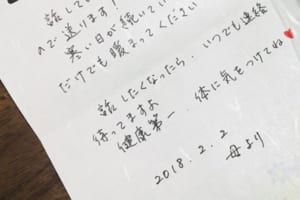 話してい
ので送ります!
寒い日が続いてい
だけでも暖まってください
話したくなったら、いつでも連絡
待ってますよ
健康第一、体に気をつけてね
2018.2.2
母より